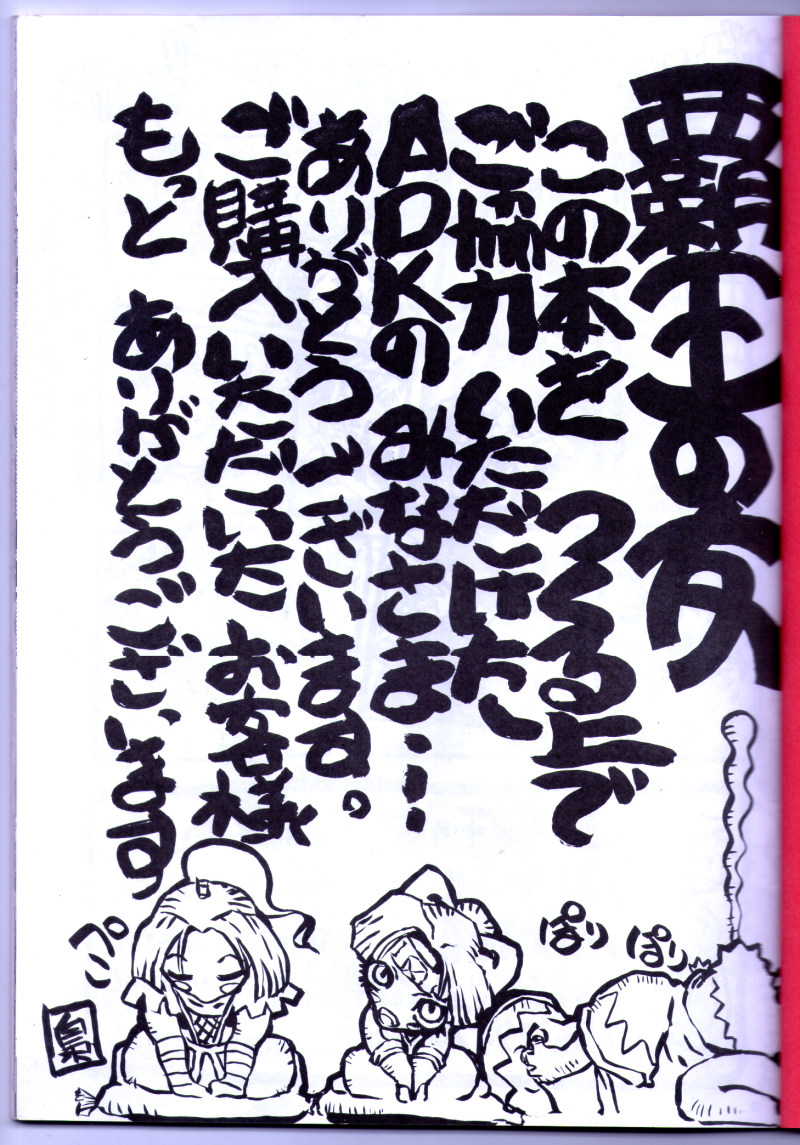 覇王の友
この本を つくる上で
ご協力 いただけた
ADKの みなさま…
ありがとう ございます。
ご購入 いただいた お客様
もっと ありがとうございます
ぽり
ぽり
ぺこ